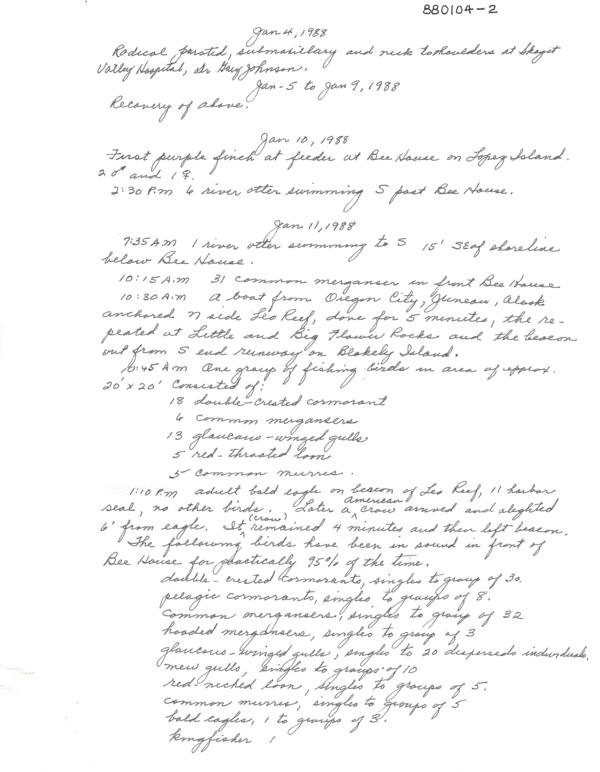 880104-2
Jan 4, 1988
Radical parotid, submaxillary and neck to shoulders at Skagit
Valley Hospital, Dr Gary Johnson.
Jan-5 to Jan 9, 1988
Recovery of above.
Jan 10, 1988
First purple finch at feeder at Bee House on Lopez Island.
2 ♂ and 1 ♀.
2:30 P.m 6 river otter swimming S past Bee House.
Jan 11, 1988
7:35 A.M 1 river otter swimming to S 15' SE of shoreline
below Bee House.
10:15 A.m 31 common merganser in front Bee House
10:30 A.m a boat from Oregon City, Juneau, Alask
anchored N side Leo Reef, done for 5 minutes, the re-
peated at Little and Big Flower Rocks and the beacon
out from S end runway on Blakely Island.
10:45 A m One group of fishing birds in area of approx.
20' x 20' consisted of:
18 double-crested cormorant
6 common mergansers
13 glaucous-winged gulls
5 red-throated loon
5 common murres.
1:10 P.m adult bald eagle on beacon of Leo Reef, 11 harbor
seal, no other birds. Later a American crow arrived and alighted
6' from eagle. It (crow) remained 4 minutes and then left beacon.
The following birds have been in sound in front of
Bee House for practically 95% of the time.
double-crested cormorants, singles to group of 30.
pelagic cormorants, singles to groups of 8.
common mergansers, singles to group of 32
hooded mergansers, singles to group of 3
glaucous-winged gulls, singles to 20 individuals.
mew gulls, singles to groups of 10
red-necked loon, singles to groups of 5.
common murres, singles to groups of 5
bald eagles, 1 to groups of 3.
kingfisher 1